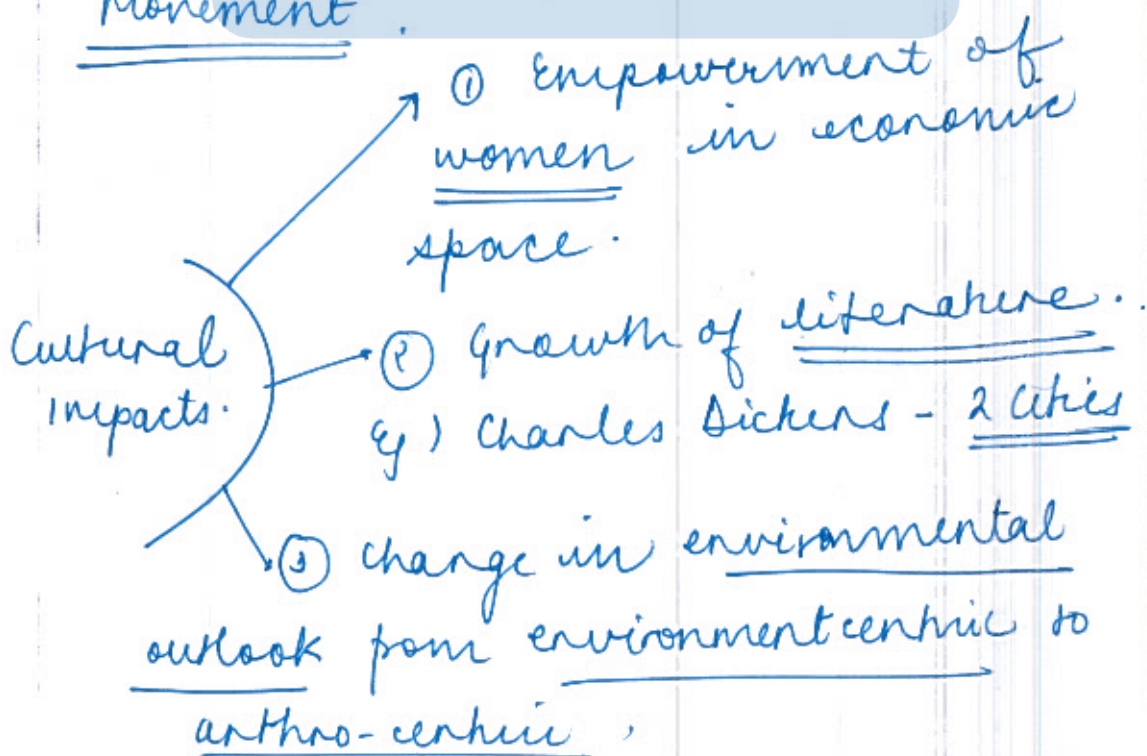 Movement.
① Empowerment of
women in economic
space.
Cultural
impacts.
② Growth of literature.
Eg) Charles Dickens - 2 Cities
③ Change in environmental
outlook from environmentcentric to
anthro-centric,